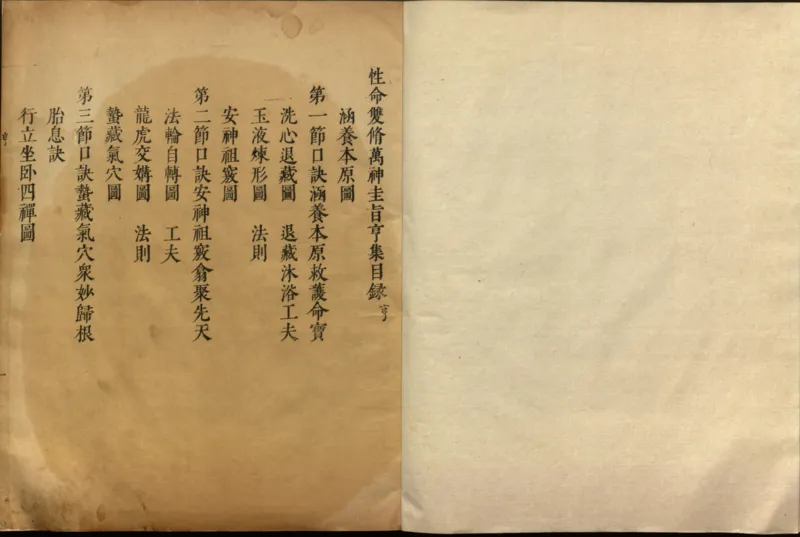 性命雙脩萬神圭旨亨集目錄 亨
涵養本原圖
第一節口訣涵養本原救護命寶
洗心退藏圖 退藏沐浴工夫
玉液煉形圖 法則
安神祖竅圖
第二節口訣安神祖竅翕聚先天
法輪自轉圖 工夫
龍虎交媾圖 法則
蟄藏氣穴圖
第三節口訣蟄藏氣穴衆妙歸根
胎息訣
行立坐卧四禪圖
亨